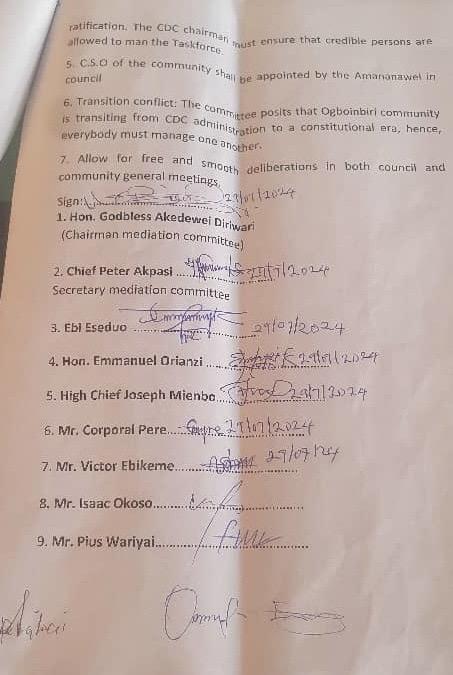 ratification. The CDC chairman must ensure that credible persons are
allowed to man the Taskforce.
5. C.S.O of the community shall be appointed by the Amananawei in
council
6. Transition conflict: The committee posits that Ogboinbiri community
is transiting from CDC administration to a constitutional era, hence,
everybody must manage one another.
7. Allow for free and smooth deliberations in both council and
community general meetings.
Sign: 29/07/2024
1. Hon. Godbless Akedewei Diriwari
(Chairman mediation committee)
2. Chief Peter Akpasi ... 29/7/2024
Secretary mediation committee
3. Ebi Eseduo ... 29/07/2024
4. Hon. Emmanuel Orianzi ... 29/07/2024
5. High Chief Joseph Mienbo... 29/7/2024
6. Mr. Corporal Pere... 29/07/2024
7. Mr. Victor Ebikeme... 29/07/24
8. Mr. Isaac Okoso...
9. Mr. Pius Wariyai...